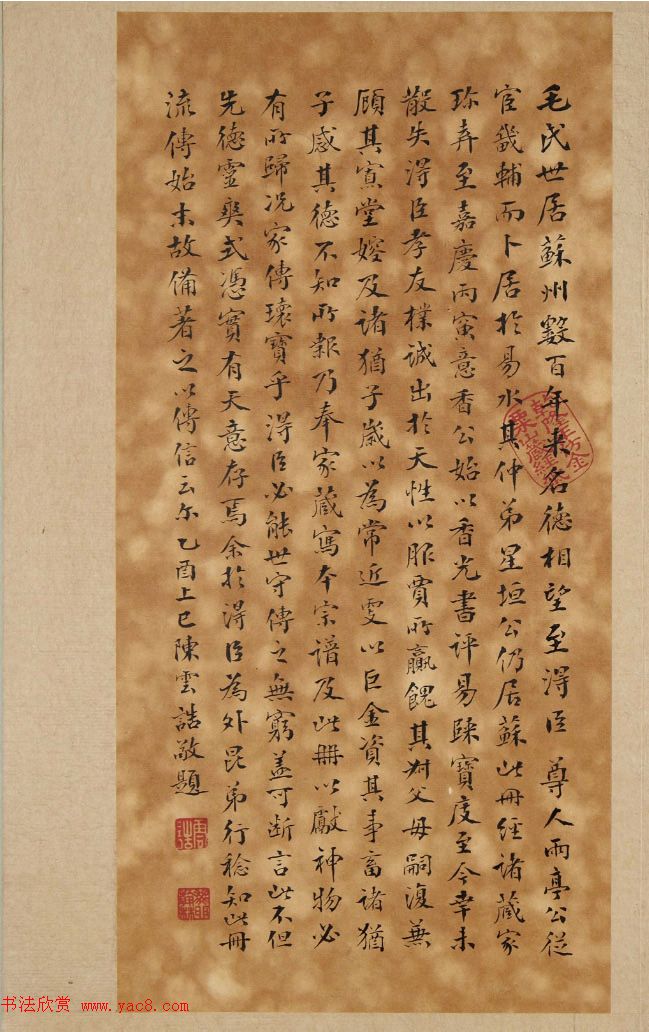 毛氏世居蘇州數百年来名德相望至得臣 尊人雨亭公從
宦畿輔而卜居於易水其仲弟星垣公仍居蘇此冊經諸藏家
珎弆至嘉慶丙寅意香公始以香光書評易歸寶度至今幸未
散失得臣孝友樸誠出於天性以服賈所贏餽其尗父毋嗣復兼
顧其寡堂嫂及諸猶子歲以為常近更以巨金資其事畜諸猶
子感其德不知所報乃奉家藏寫本宗譜及此冊以獻神物必
有所歸况家傳瓌寶乎得臣必能世守傳之無窮蓋可斷言此不但
先德靈爽式憑實有天意存焉余於得臣為外昆弟行稔知此冊
流傳始末故備著之以傳信云尒乙酉上巳陳雲誥敬題
书法欣赏 www.yac8.com